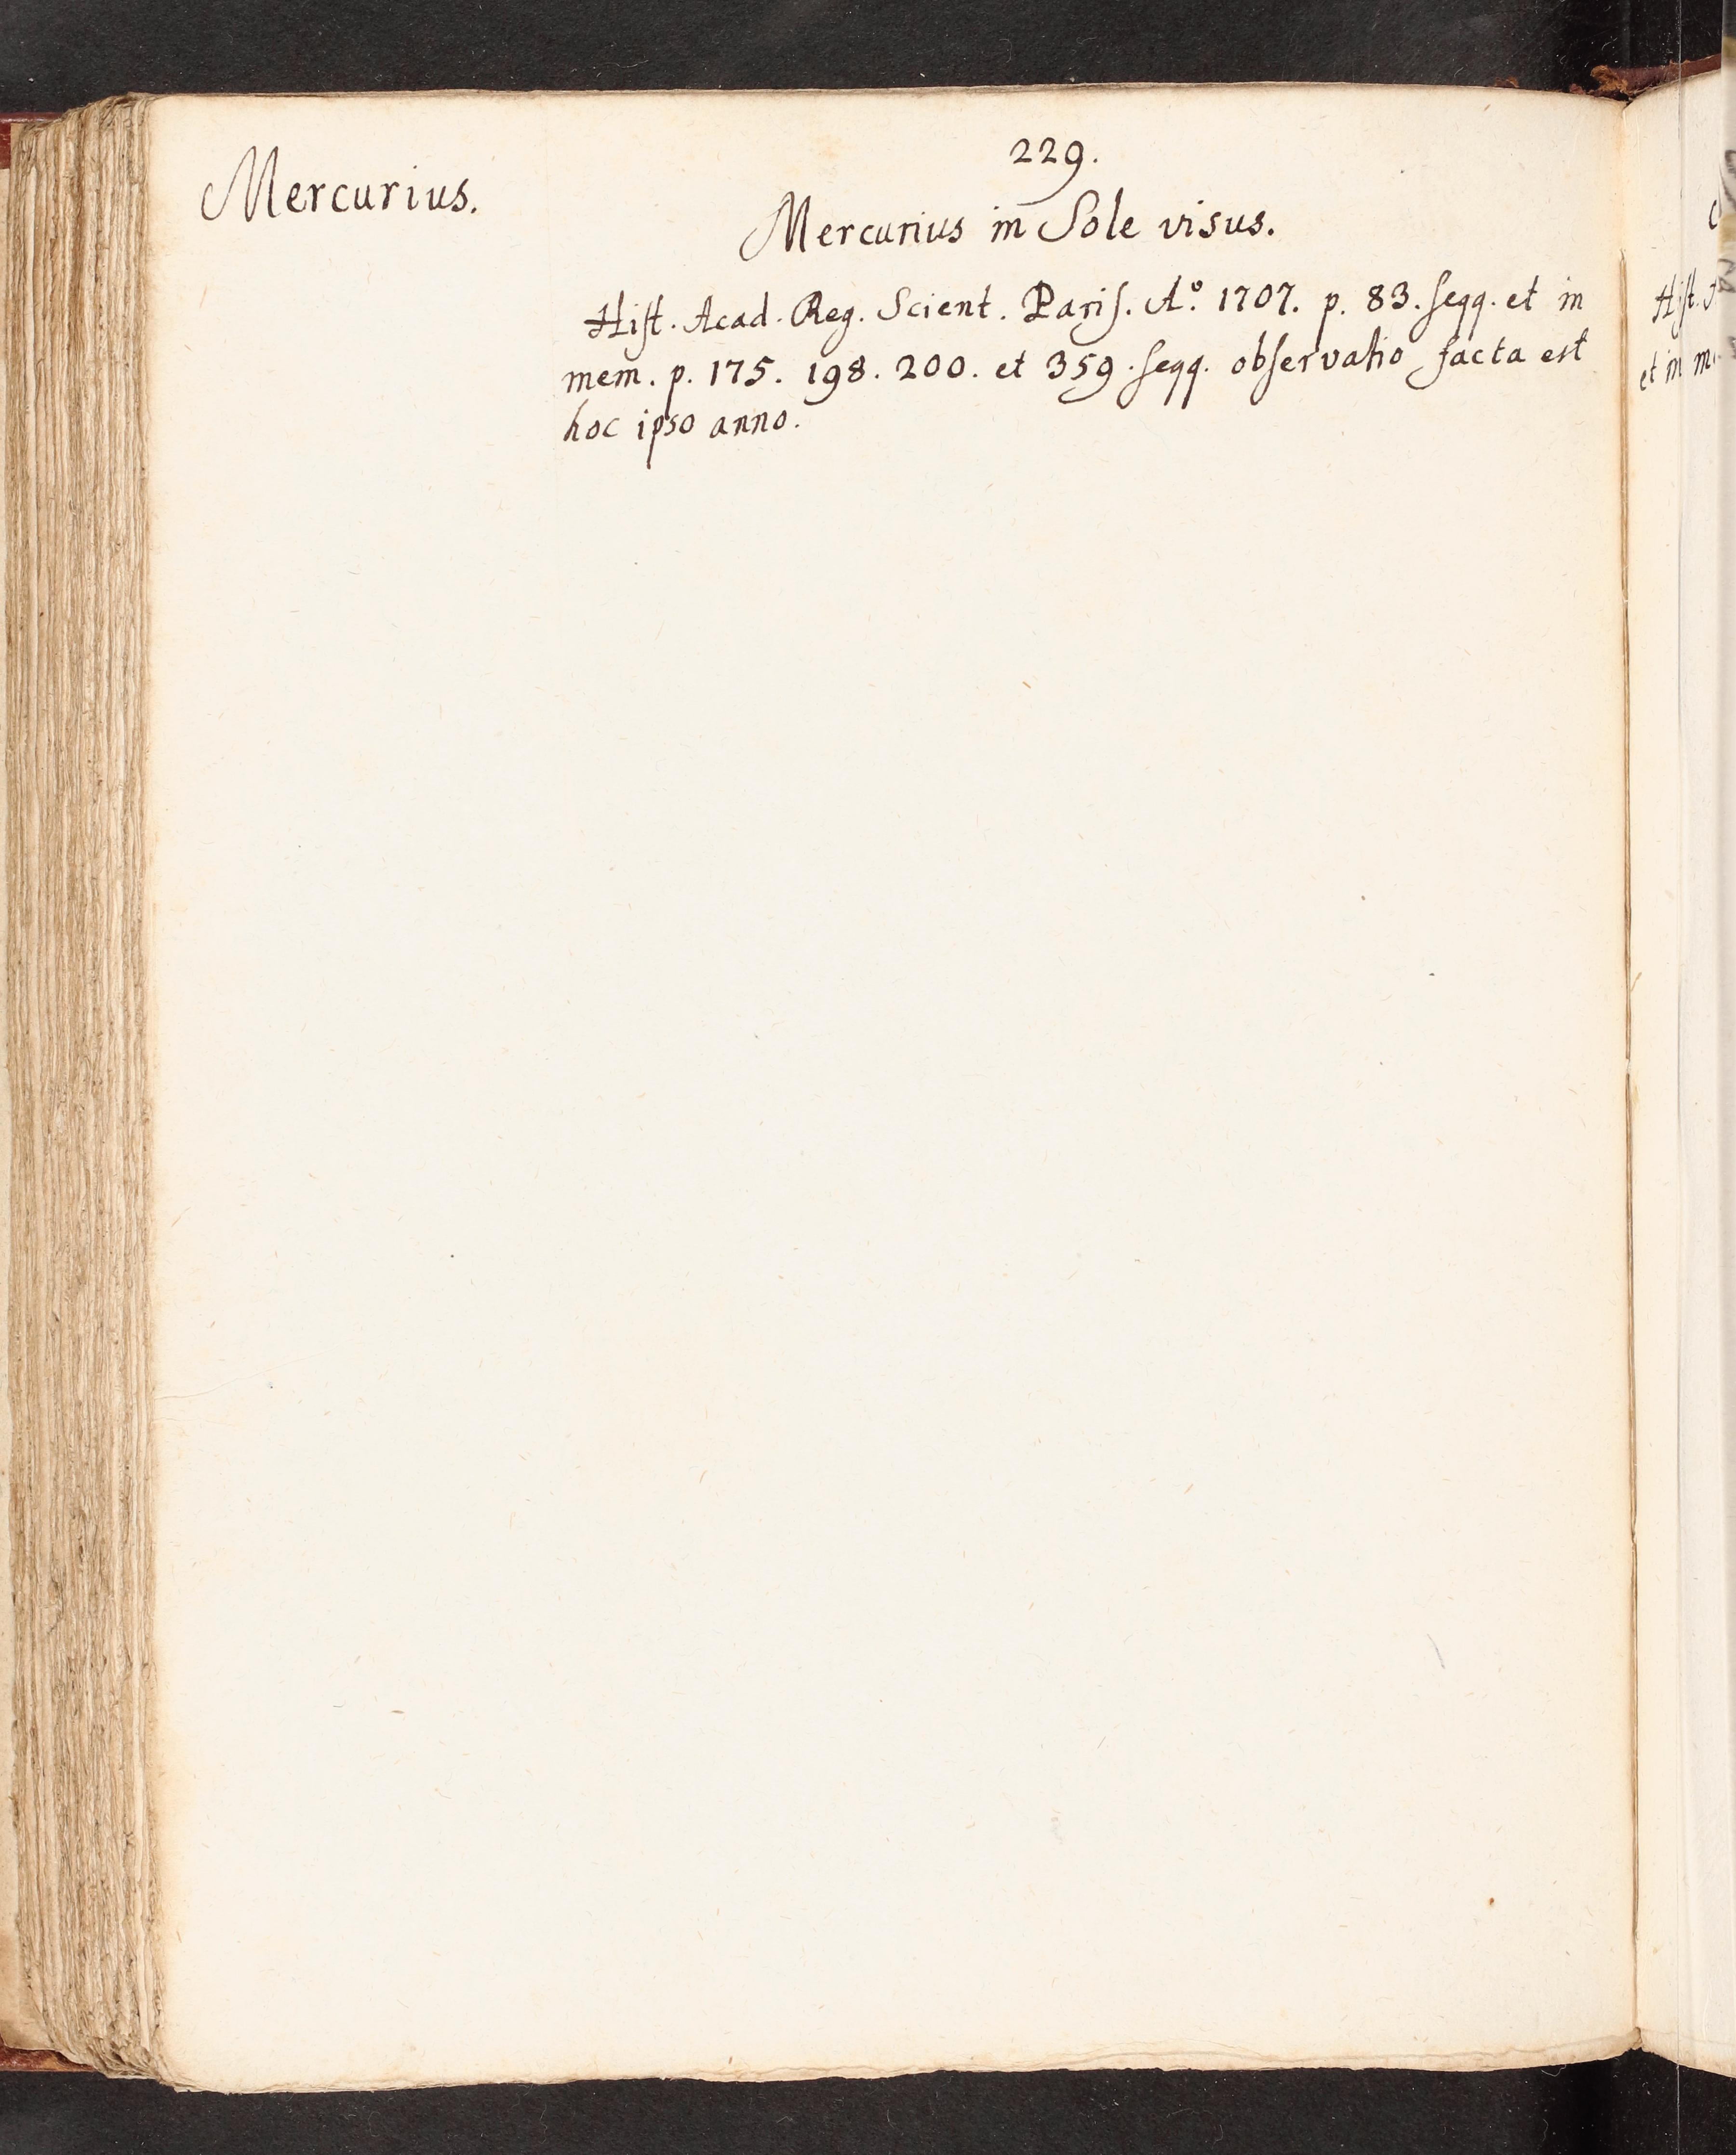 229.
Mercurius.
Mercurius in Sole visus.
Hiſt. Acad. Reg. Scient. Pariſ. A.º 1707. p. 83. ſeqq. et in
mem. p. 175. 198. 200. et 359. ſeqq. obſervatio facta est
hoc ipso anno.
Hiſt.
et in